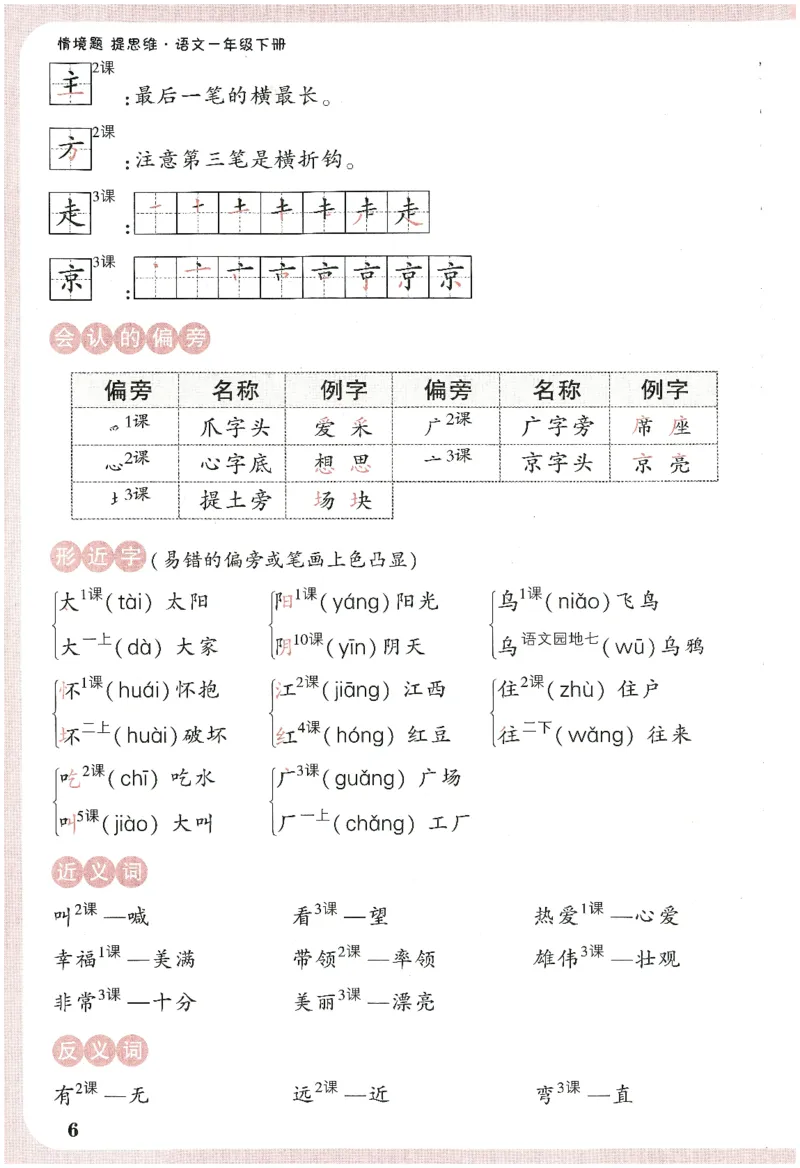 情境题 提思维·语文一年级下册
主 2课 :最后一笔的横最长。
方 2课 :注意第三笔是横折钩。
走 3课 :
京 3课 :
会认的偏旁
偏旁 名称 例字 偏旁 名称 例字
爫1课 爪字头 爱 采 广2课 广字旁 席 座
心2课 心字底 想 思 亠3课 京字头 京 亮
土3课 提土旁 场 块
形近字(易错的偏旁或笔画上色凸显)
太1课(tài) 太阳 阳1课(yáng)阳光 鸟1课(niǎo)飞鸟
大一上(dà) 大家 阴10课(yīn)阴天 乌语文园地七(wū)乌鸦
怀1课(huái)怀抱 江2课(jiāng) 江西 住2课(zhù) 住户
坏二上(huài)破坏 红4课(hóng) 红豆 往二下(wǎng) 往来
吃2课(chī) 吃水 广3课(guǎng) 广场
叫5课(jiào) 大叫 厂一上(chǎng) 工厂
近义词
叫2课—喊 看3课—望 热爱1课—心爱
幸福1课—美满 带领2课—率领 雄伟3课—壮观
非常3课—十分 美丽3课—漂亮
反义词
有2课—无 远2课—近 弯3课—直
6